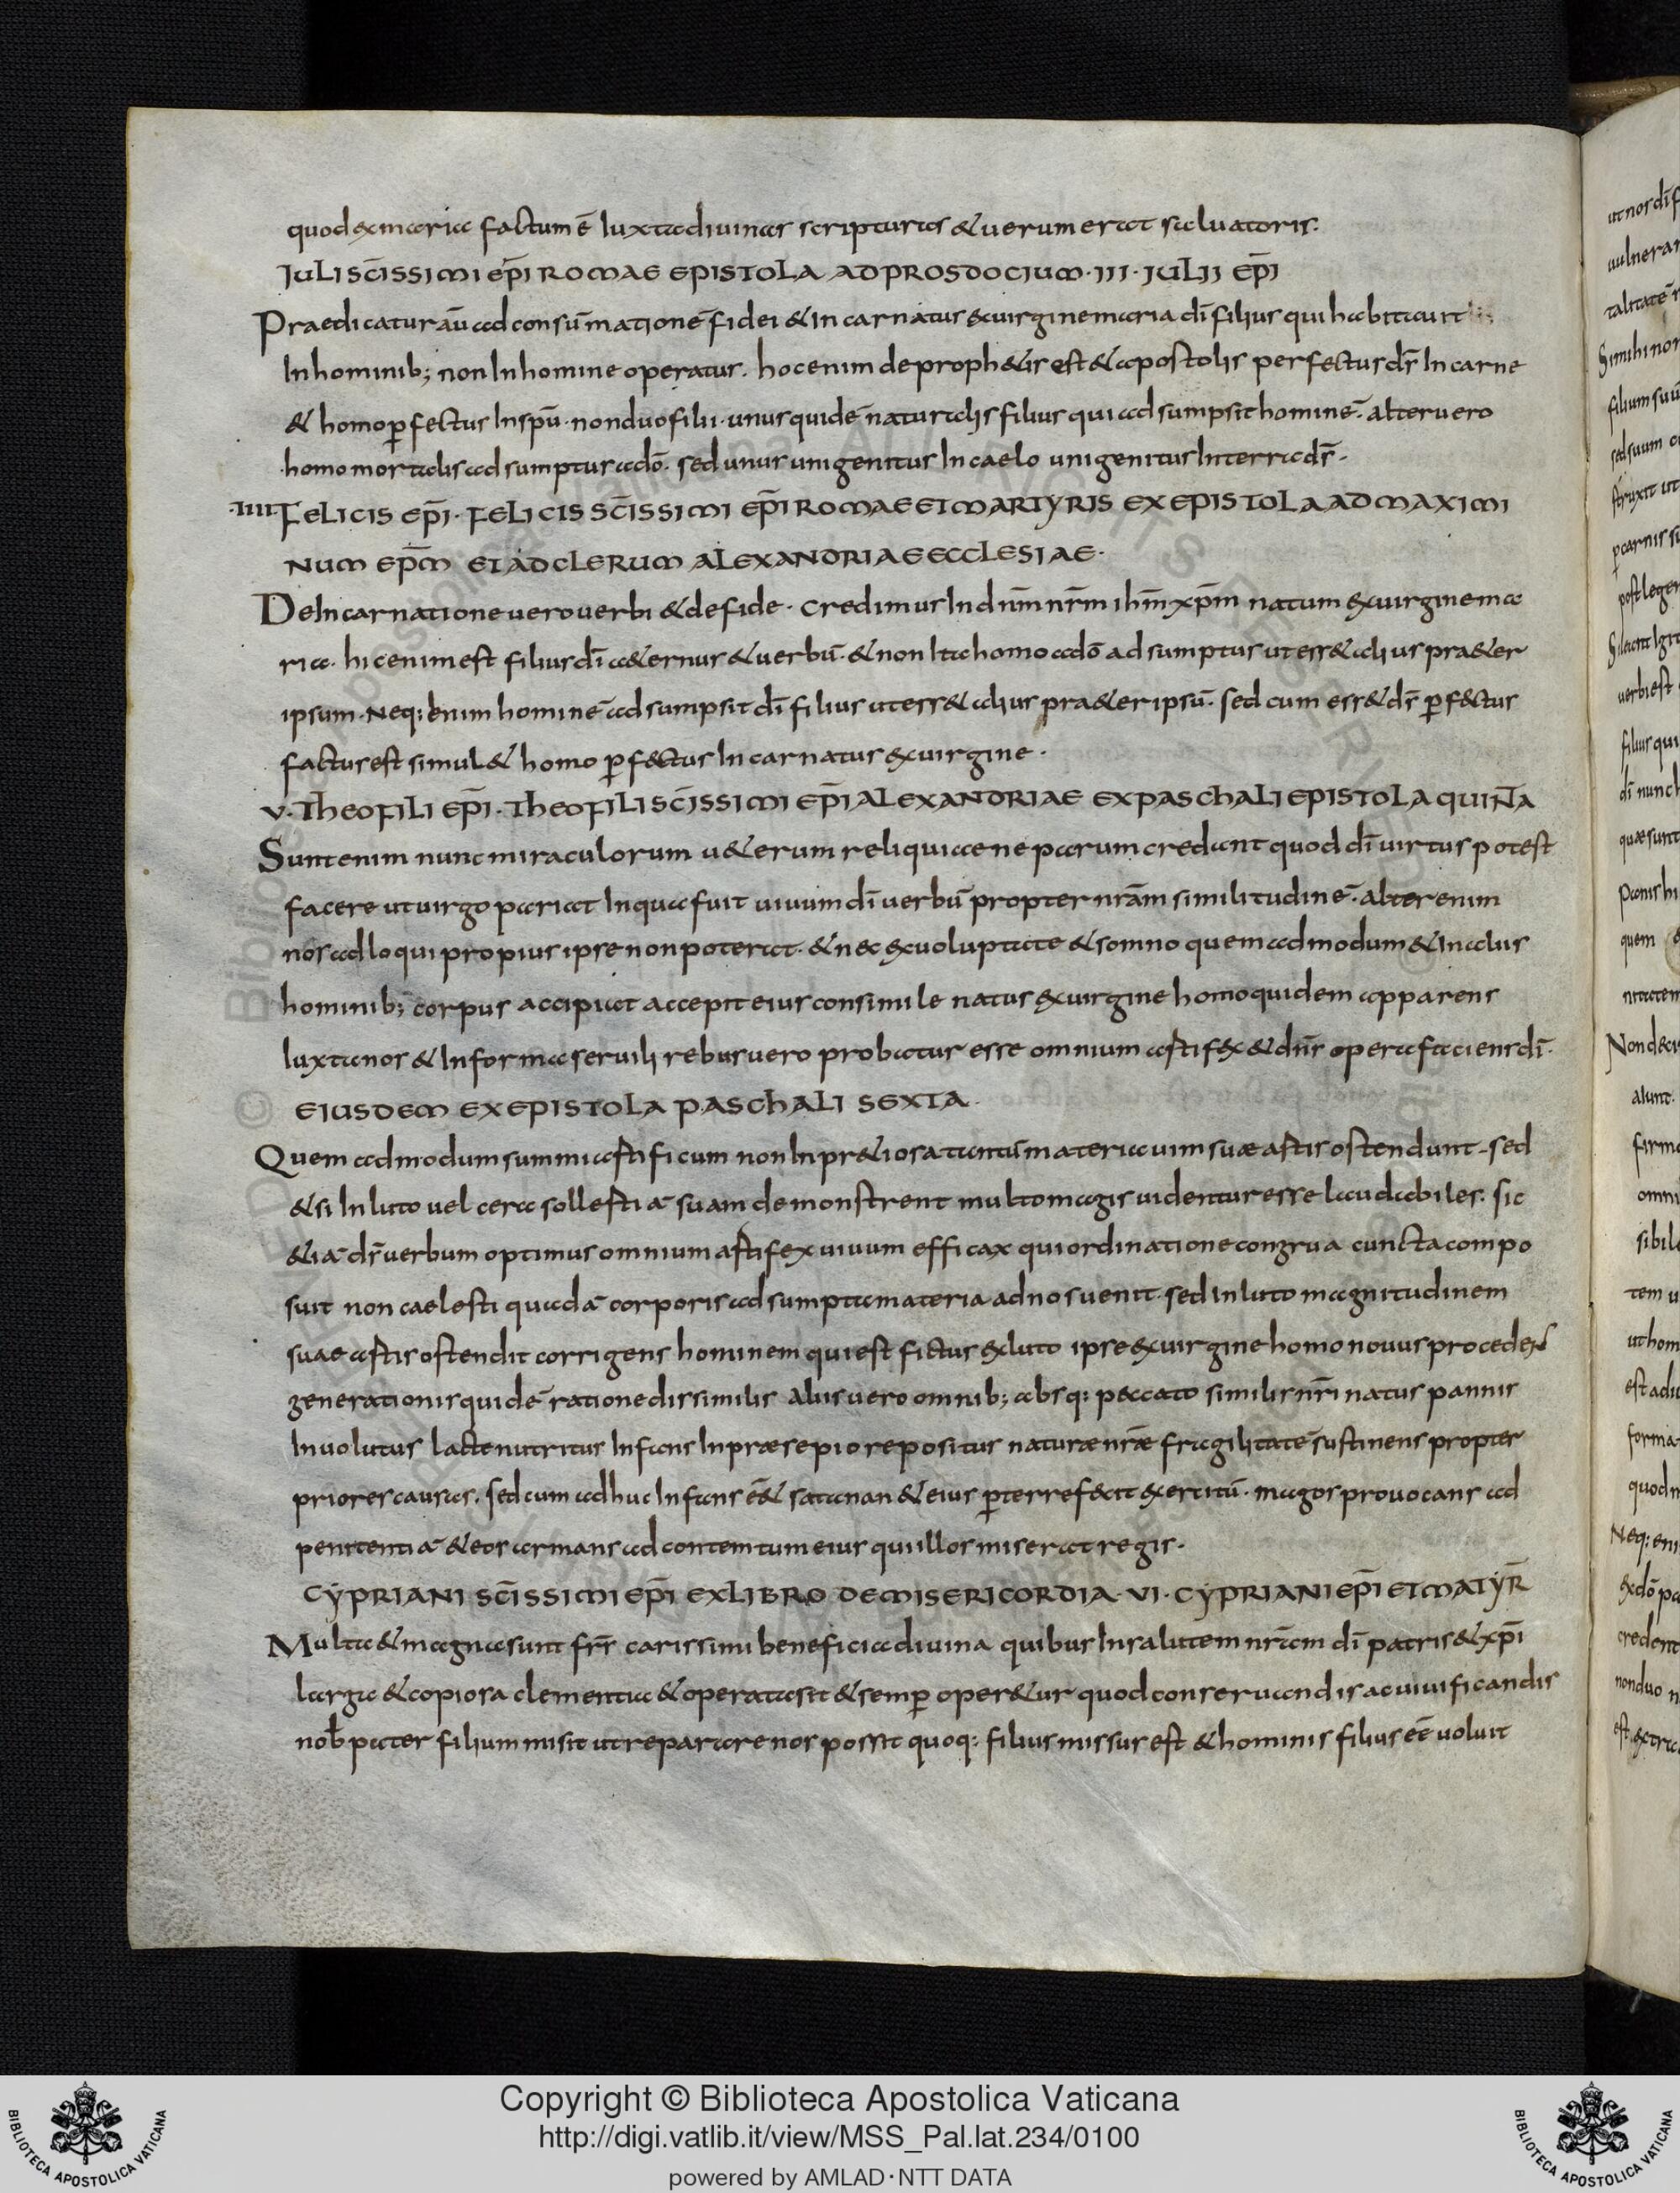 quod ex maria factum ē Iuxta diuinas scripturas & uerum erat saluatoris:
IULI SC̄ISSIMI EPĪ ROMAE EPISTOLA AD PROSDOCIUM · III · IULII EPĪ
Praedicatur aū ad consūmationē fidei & Incarnatus ex uirgine maria dī filius qui habitauit
In hominib; non In homine operatus. hoc enim de proph&is est & apostolis perfectus dr̄ In carne
& homo ꝑfectus In spū · non duo filii · unus quidē naturalis filius qui adsumpsit hominē · alter uero
homo mortalis adsumptus a dō · sed unus unigenitus In caelo unigenitus In terra dr̄ ·
·IIII· FELICIS EPĪ · FELICIS SC̄ISSIMI EPĪ ROMAE ET MARTYRIS EX EPISTOLA AD MAXIMI
NUM EPM̄ ET AD CLERUM ALEXANDRIAE ECCLESIAE ·
De Incarnatione uero uerbi & de fide · Credimus In dnm̄ nrm̄ ihm̄ xpm̄ natum ex uirgine ma
ria · hic enim est filius dī a&ernus & uerbū · & non Ita homo a dō adsumptus ut ess& alius pra&er
ipsum · Neq: enim hominē adsumpsit dī filius ut ess& alius pra&er ipsū · sed cum ess& ds̄ ꝑfectus
factus est simul & homo ꝑfectus Incarnatus ex uirgine ·
V · THEOFILI EPĪ · THEOFILI SC̄ISSIMI EPĪ ALEXANDRIAE EX PASCHALI EPISTOLA QUINTA
Sunt enim nunc miraculorum u&erum reliquiae ne parum credant quod dī uirtus potest
facere ut uirgo pariat In qua fuit uiuum dī uerbū propter nr̄am similitudinē · alter enim
nos adloqui propius ipse non poterat · & nec ex uoluptate & somno quemadmodum & In alus
hominib; corpus accipiat accepit eius consimile natus ex uirgine homo quidem apparens
Iuxta nos & In forma seruili rebus uero probatur esse omnium artifex & dn̄s opera faciens dī ·
EIUSDEM EX EPISTOLA PASCHALI SEXTA ·
Quemadmodum summi artificum non In pr&iosa tantū materia uim suae artis ostendunt · sed
& si In luto uel cera sollertiā suam demonstrent multo magis uidentur esse laudabiles: sic
&iā ds̄ uerbum optimus omnium artifex uiuum efficax qui ordinatione congrua cuncta compo
suit non caelesti quadā corporis adsumpta materia ad nos uenit · sed In luto magnitudinem
suae artis ostendit corrigens hominem qui est fictus ex luto ipse ex uirgine homo nouus procedens
generationis quidē ratione dissimilis alus uero omnib; absq: peccato similis nr̄i natus pannis
Inuolutus lacte nutritus Infans In praesepio repositus naturae nr̄ae fragilitatē sustinens propter
priores causas · sed cum adhuc Infans ēē& satanan & eius ꝑterrefecit exercitū · magos prouocans ad
penitentiā & eos armans ad contemtum eius qui illos miserat regis ·
CYPRIANI SC̄ISSIMI EPĪ EX LIBRO DE MISERICORDIA · VI · CYPRIANI EPĪ ET MATYR̄
Multa & magna sunt frs̄ carissimi beneficia diuina quibus In salutem nr̄am dī patris & xpī
larga & copiosa clementia & operata sit & semꝑ oper&ur quod conseruandis ac uiuificandis
nob̄ pater filium misit ut reparare nos possit quoq: filius missus est & hominis filius eē uoluit
Copyright © Biblioteca Apostolica Vaticana
http://digi.vatlib.it/view/MSS_Pal.lat.234/0100
powered by AMLAD · NTT DATA
BIBLIOTECA APOSTOLICA VATICANA
BIBLIOTECA APOSTOLICA VATICANA